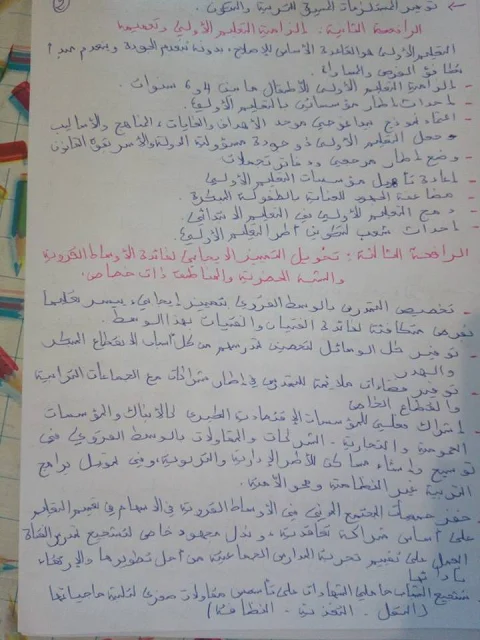 ← توفير المستلزمات الضرورية للتربية والتكوين.
الرافعة الثانية: إلزامية التعليم الأولي وتعميمه
التعليم الأولي هو القاعدة الأساس للإصلاح، بدونه تنعدم الجودة وينعدم مبدأ
تكافؤ الفرص والمساواة
- إلزامية التعليم الأولي للأطفال ما بين 4 و 6 سنوات
- إحداث إطار مؤسساتي بالتعليم الأولي.
- اعتماد نموذج بيداغوجي موحد الأهداف والغايات، المناهج والأساليب
- جعل التعليم الأولي ذو جودة مسؤولية الدولة والأسر بقوة القانون
- وضع إطار مرجعي ودفاتر تحملات
- إعادة تأهيل مؤسسات التعليم الأولي
- مضاعفة الجهود للعناية بالطفولة المبكرة.
- دمج التعليم الأولي في التعليم الابتدائي.
- إحداث شعب لتكوين أطر التعليم الأولي.
الرافعة الثالثة: تخويل التمييز الإيجابي لفائدة الأوساط القروية
والشبه الحضرية والمناطق ذات خصاص.
- تخصيص التمدرس بالوسط القروي بتمييز إيجابي، ييسر تعليما
بفرص متكافئة لفائدة الفتيان والفتيات بهذا الوسط.
- توفير كل الوسائل لتحصين تمدرسهم من كل أسباب الانقطاع المبكر
والهدر
- توفير فضاءات ملائمة للتمدرس في إطار شراكات مع الجماعات الترابية
والقطاع الخاص
- إشراك فعلي للمؤسسات الاقتصادية الكبرى كالأبناك والمؤسسات
العمومية والتجارية، الشركات والمقاولات بالوسط القروي في
توسيع وإنشاء مساكن للأطر الإدارية والتربوية وفي تمويل برامج
التربية غير النظامية ومحو الأمية.
- حفز جمعيات المجتمع المدني في الأوساط القروية في الإسهام في تعميم التعليم
على أساس شراكة تعاقدية، وبذل مجهود خاص لتشجيع تمدرس الفتاة
- العمل على تعميم تجربة المدارس الجماعاتية من أجل تطويرها والارتقاء
بأدائها
- تشجيع الشباب حاملي الشهادات على تأسيس مقاولات صغرى لتلبية حاجياتها
(النقل - التغذية - النظافة)